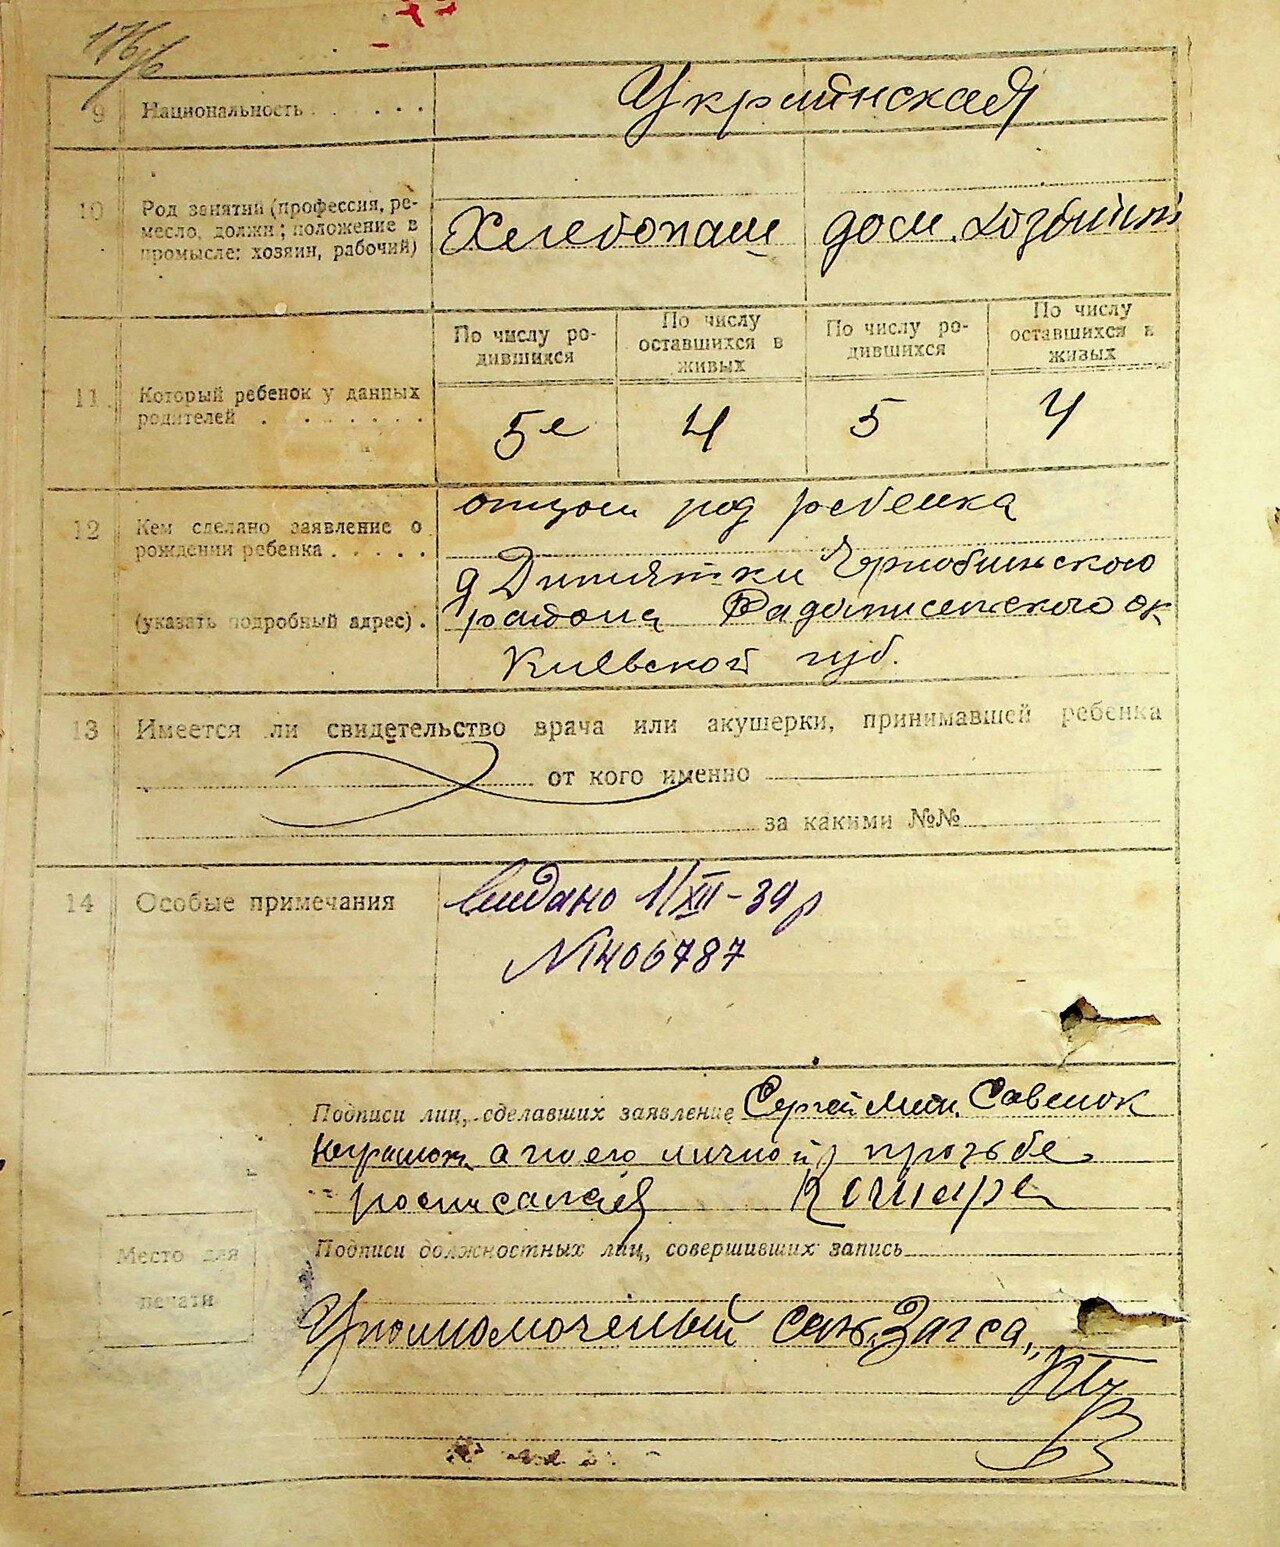 176/6
9 Национальность Украинская
10 Род занятий (профессия, ре-
месло, должн; положение в
промысле: хозяин, рабочий)
Хлебопаш дом. хозяйств
По числу ро-
дившихся
По числу
оставшихся в
живых
По числу ро-
дившихся
По числу
оставшихся в
живых
11 Который ребенок у данных
родителей
5е 4 5 4
12 Кем сделано заявление о
рождении ребенка
(указать подробный адрес).
отцом ребенка
д Дитятки Чернобыльского
района Радомысельского ок
Киевской губ.
13 Имеется ли свидетельство врача или акушерки, принимавшей ребенка
от кого именно
за какими №№
14 Особые примечания
Видано 1/XII-39 р
№1406787
Подписи лиц, сделавших заявление Сергей Савенок
неграмотн, а по его личной прозьбе
росписался
Подписи должностных лиц, совершивших запись
Место для
печати
Уполномоченый Загса